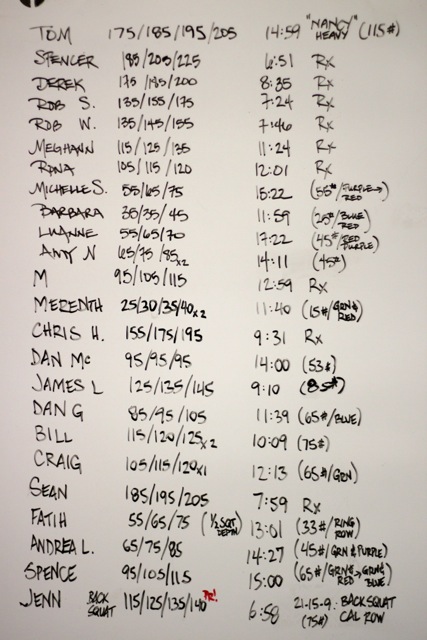 TOM 175/185/195/205 14:59 "NANCY" HEAVY (115#)
SPENCER 185/205/225 6:51 Rx
DEREK 175/195/200 8:35 Rx
ROB S. 135/155/175 7:24 Rx
ROB W. 135/145/155 7:46 Rx
MEGHANN 115/125/135 11:24 Rx
RONA 105/115/120 12:01 Rx
MICHELLE S. 55/65/75 15:22 (55#/PURPLE→RED)
BARBARA 35/35/45 11:59 (25#/BLUE/RED)
LUANNE 55/65/70 17:22 (45#/RED PURPLE)
AMY N 65/75/85x2 14:11 (45#)
M 95/105/115 12:59 Rx
MEREDITH 25/30/35/40x2 11:40 (15#/GRN& RED)
CHRIS H. 155/175/195 9:31 Rx
DAN Mc 95/95/95 14:00 (53#)
JAMES L 125/135/145 9:10 (85#)
DAN G 85/95/105 11:39 (65#/BLUE)
BILL 115/120/125x2 10:09 (75#)
CRAIG 105/115/120x1 12:13 (65#/GRN)
SEAN 185/195/205 7:59 Rx
FATIH 55/65/75 (1/2 SQT DEPTH) 13:01 (33#/RING ROW)
ANDREA L. 65/75/85 14:27 (45#/GRN & PURPLE)
SPENCE 95/105/115 15:00 (65#/GRN& RED→GRN& BLUE)
JENN BACK SQUAT 115/125/135/140 PR! 6:58 21-15-9 BACK SQUAT (75#) CAL ROW